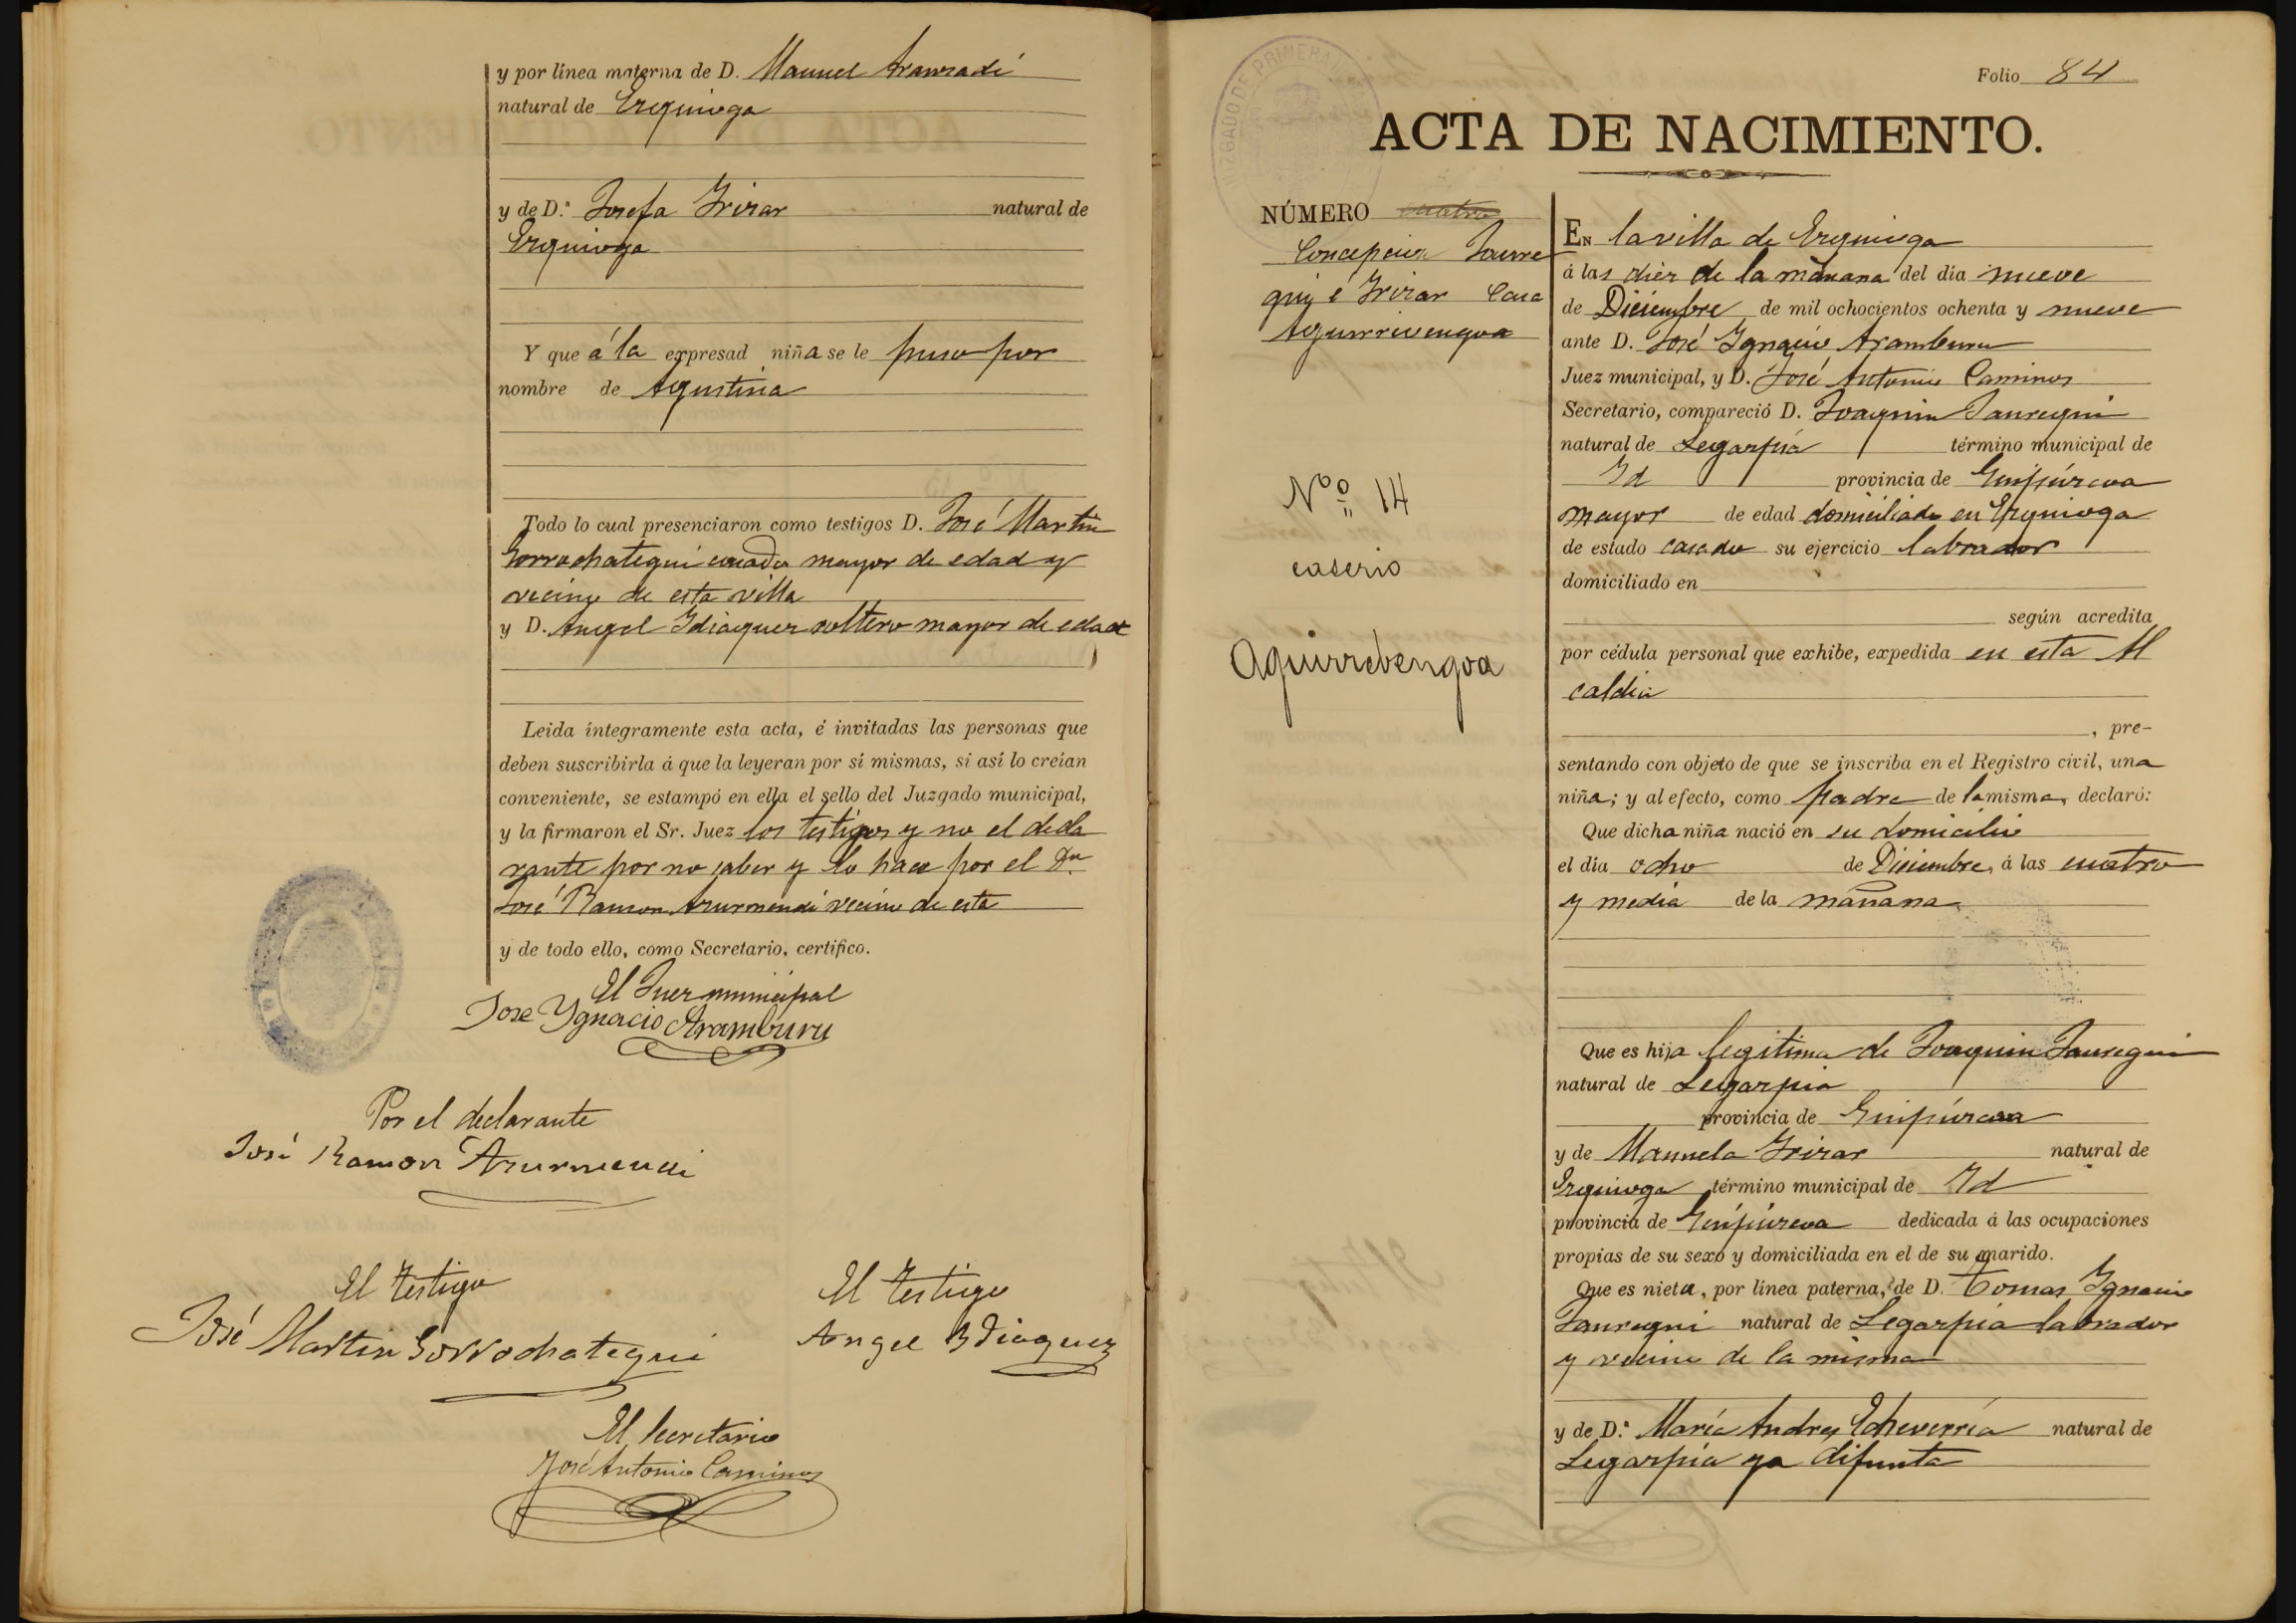 y por línea materna de D. Manuel Aranzadi
natural de Ezquioga
y de D.ª Josefa Irizar natural de
Ezquioga
Y que á la expresad niña se le puso por
nombre de Agustina
Todo lo cual presenciaron como testigos D. José Martin
Gorrochategui casado mayor de edad y
vecino de esta villa
y D. Angel Idiaquez soltero mayor de edad
Leida íntegramente esta acta, é invitadas las personas que
deben suscribirla á que la leyeran por sí mismas, si así lo creían
conveniente, se estampó en ella el sello del Juzgado municipal,
y la firmaron el Sr. Juez los testigos y no el decla
rante por no saber y lo hace por el Dn
José Ramon Azurmendi vecino de esta
y de todo ello, como Secretario, certifico.
El Juez municipal
Jose Ygnacio Aramburu
Por el declarante
José Ramon Azurmendi
El testigo
José Martin Gorrochategui
El testigo
Angel Ydiaquez
El Secretario
José Antonio Caminos
Folio 84
JUZGADO DE PRIMERA
ACTA DE NACIMIENTO.
NÚMERO cuatro
Concepcion Jaure
gui é Irizar Casa
Aguirrevengoa
Nº 14
caserio
Aguirrebengoa
EN la villa de Ezquioga
á las diez de la mañana del día nueve
de Diciembre de mil ochocientos ochenta y nueve
ante D. José Ygnacio Aramburu
Juez municipal, y D. José Antonio Caminos
Secretario, compareció D. Joaquin Jauregui
natural de Legazpia término municipal de
Id provincia de Guipúzcoa
mayor de edad domiciliado en Ezquioga
de estado casado su ejercicio labrador
domiciliado en
según acredita
por cédula personal que exhibe, expedida en esta Al
caldia
, pre-
sentando con objeto de que se inscriba en el Registro civil, una
niña; y al efecto, como padre de la misma, declaró:
Que dicha niña nació en su domicilio
el día ocho de Diciembre, á las cuatro
y media de la mañana
Que es hija legitima de Joaquin Jauregui
natural de Legazpia
provincia de Guipúzcoa
y de Manuela Irizar natural de
Ezquioga término municipal de Id
provincia de Guipúzcoa dedicada á las ocupaciones
propias de su sexo y domiciliada en el de su marido.
Que es nieta, por línea paterna, de D. Tomas Ygnacio
Jauregui natural de Legazpia labrador
y vecino de la misma
y de D.ª María Andres Echeverría natural de
Legazpia ya difunta